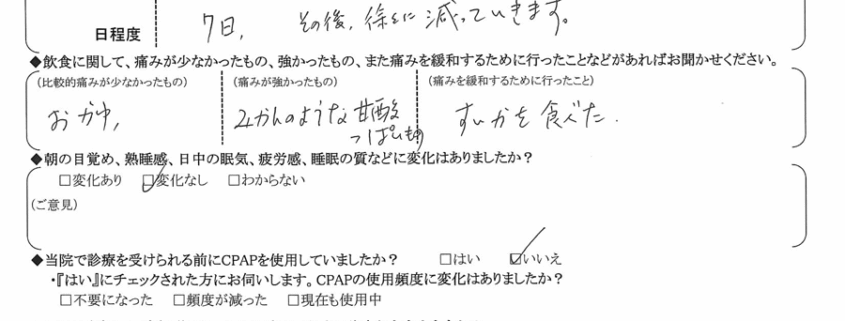 日程度 7日, その後, 徐々に 減っていきます。
◆飲食に関して、痛みが少なかったもの、強かったもの、また痛みを緩和するために行ったことなどがあればお聞かせください。
(比較的痛みが少なかったもの) (痛みが強かったもの) (痛みを緩和するために行ったこと)
おかゆ, みかんのような甘酸 すいかを食べた.
っぱいもの
◆朝の目覚め、熟睡感、日中の眠気、疲労感、睡眠の質などに変化はありましたか?
□変化あり ☑変化なし □わからない
(ご意見)
◆当院で診療を受けられる前にCPAPを使用していましたか? □はい ☑いいえ
・『はい』にチェックされた方にお伺いします。CPAPの使用頻度に変化はありましたか?
□不要になった □頻度が減った □現在も使用中